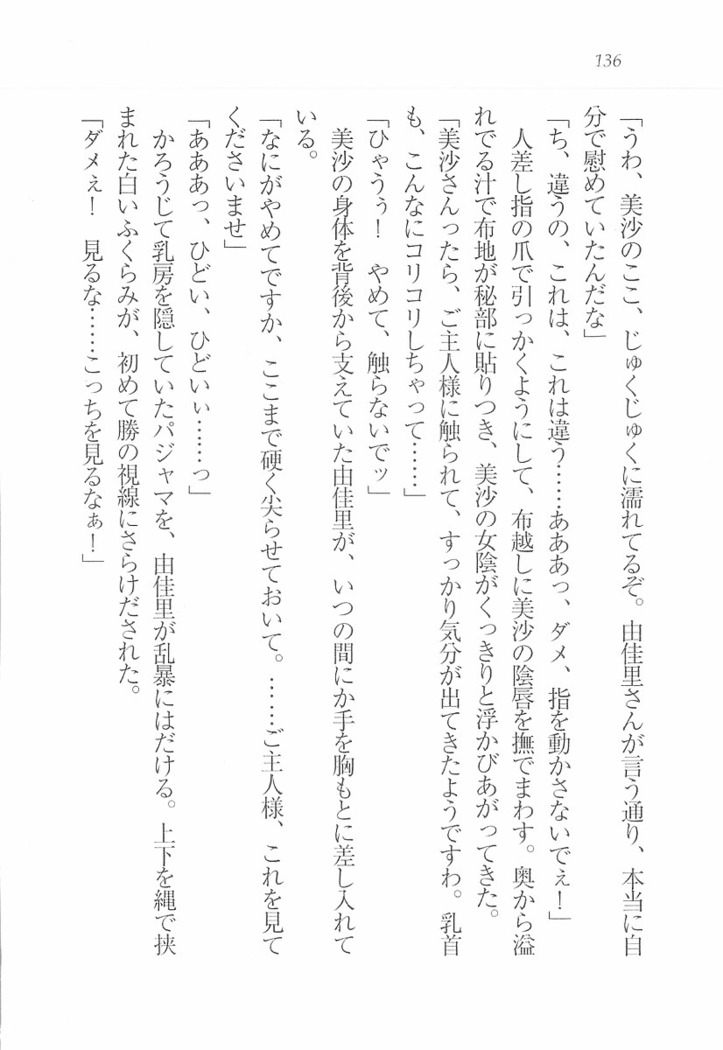 136
「うわ、美沙のここ、じゅくじゅくに濡れてるぞ。由佳里さんが言う通り、本当に自
分で慰めていたんだな」
「ち、違うの、これは、これは違う……あああっ、ダメ、指を動かさないでぇ！」
　人差し指の爪で引っかくようにして、布越しに美沙の陰唇を撫でまわす。奥から溢
れでる汁で布地が秘部に貼りつき、美沙の女陰がくっきりと浮かびあがってきた。
「美沙さんったら、ご主人様に触られて、すっかり気分が出てきたようですわ。乳首
も、こんなにコリコリしちゃって……」
「ひゃうぅ！　やめて、触らないでッ」
　美沙の身体を背後から支えていた由佳里が、いつの間にか手を胸もとに差し入れて
いる。
「なにがやめてですか、ここまで硬く尖らせておいて。……ご主人様、これを見て
くださいませ」
「あああっ、ひどい、ひどいぃ……っ」
　かろうじて乳房を隠していたパジャマを、由佳里が乱暴にはだける。上下を縄で挟
まれた白いふくらみが、初めて勝の視線にさらけだされた。
「ダメぇ！　見るな……こっちを見るなぁ！」